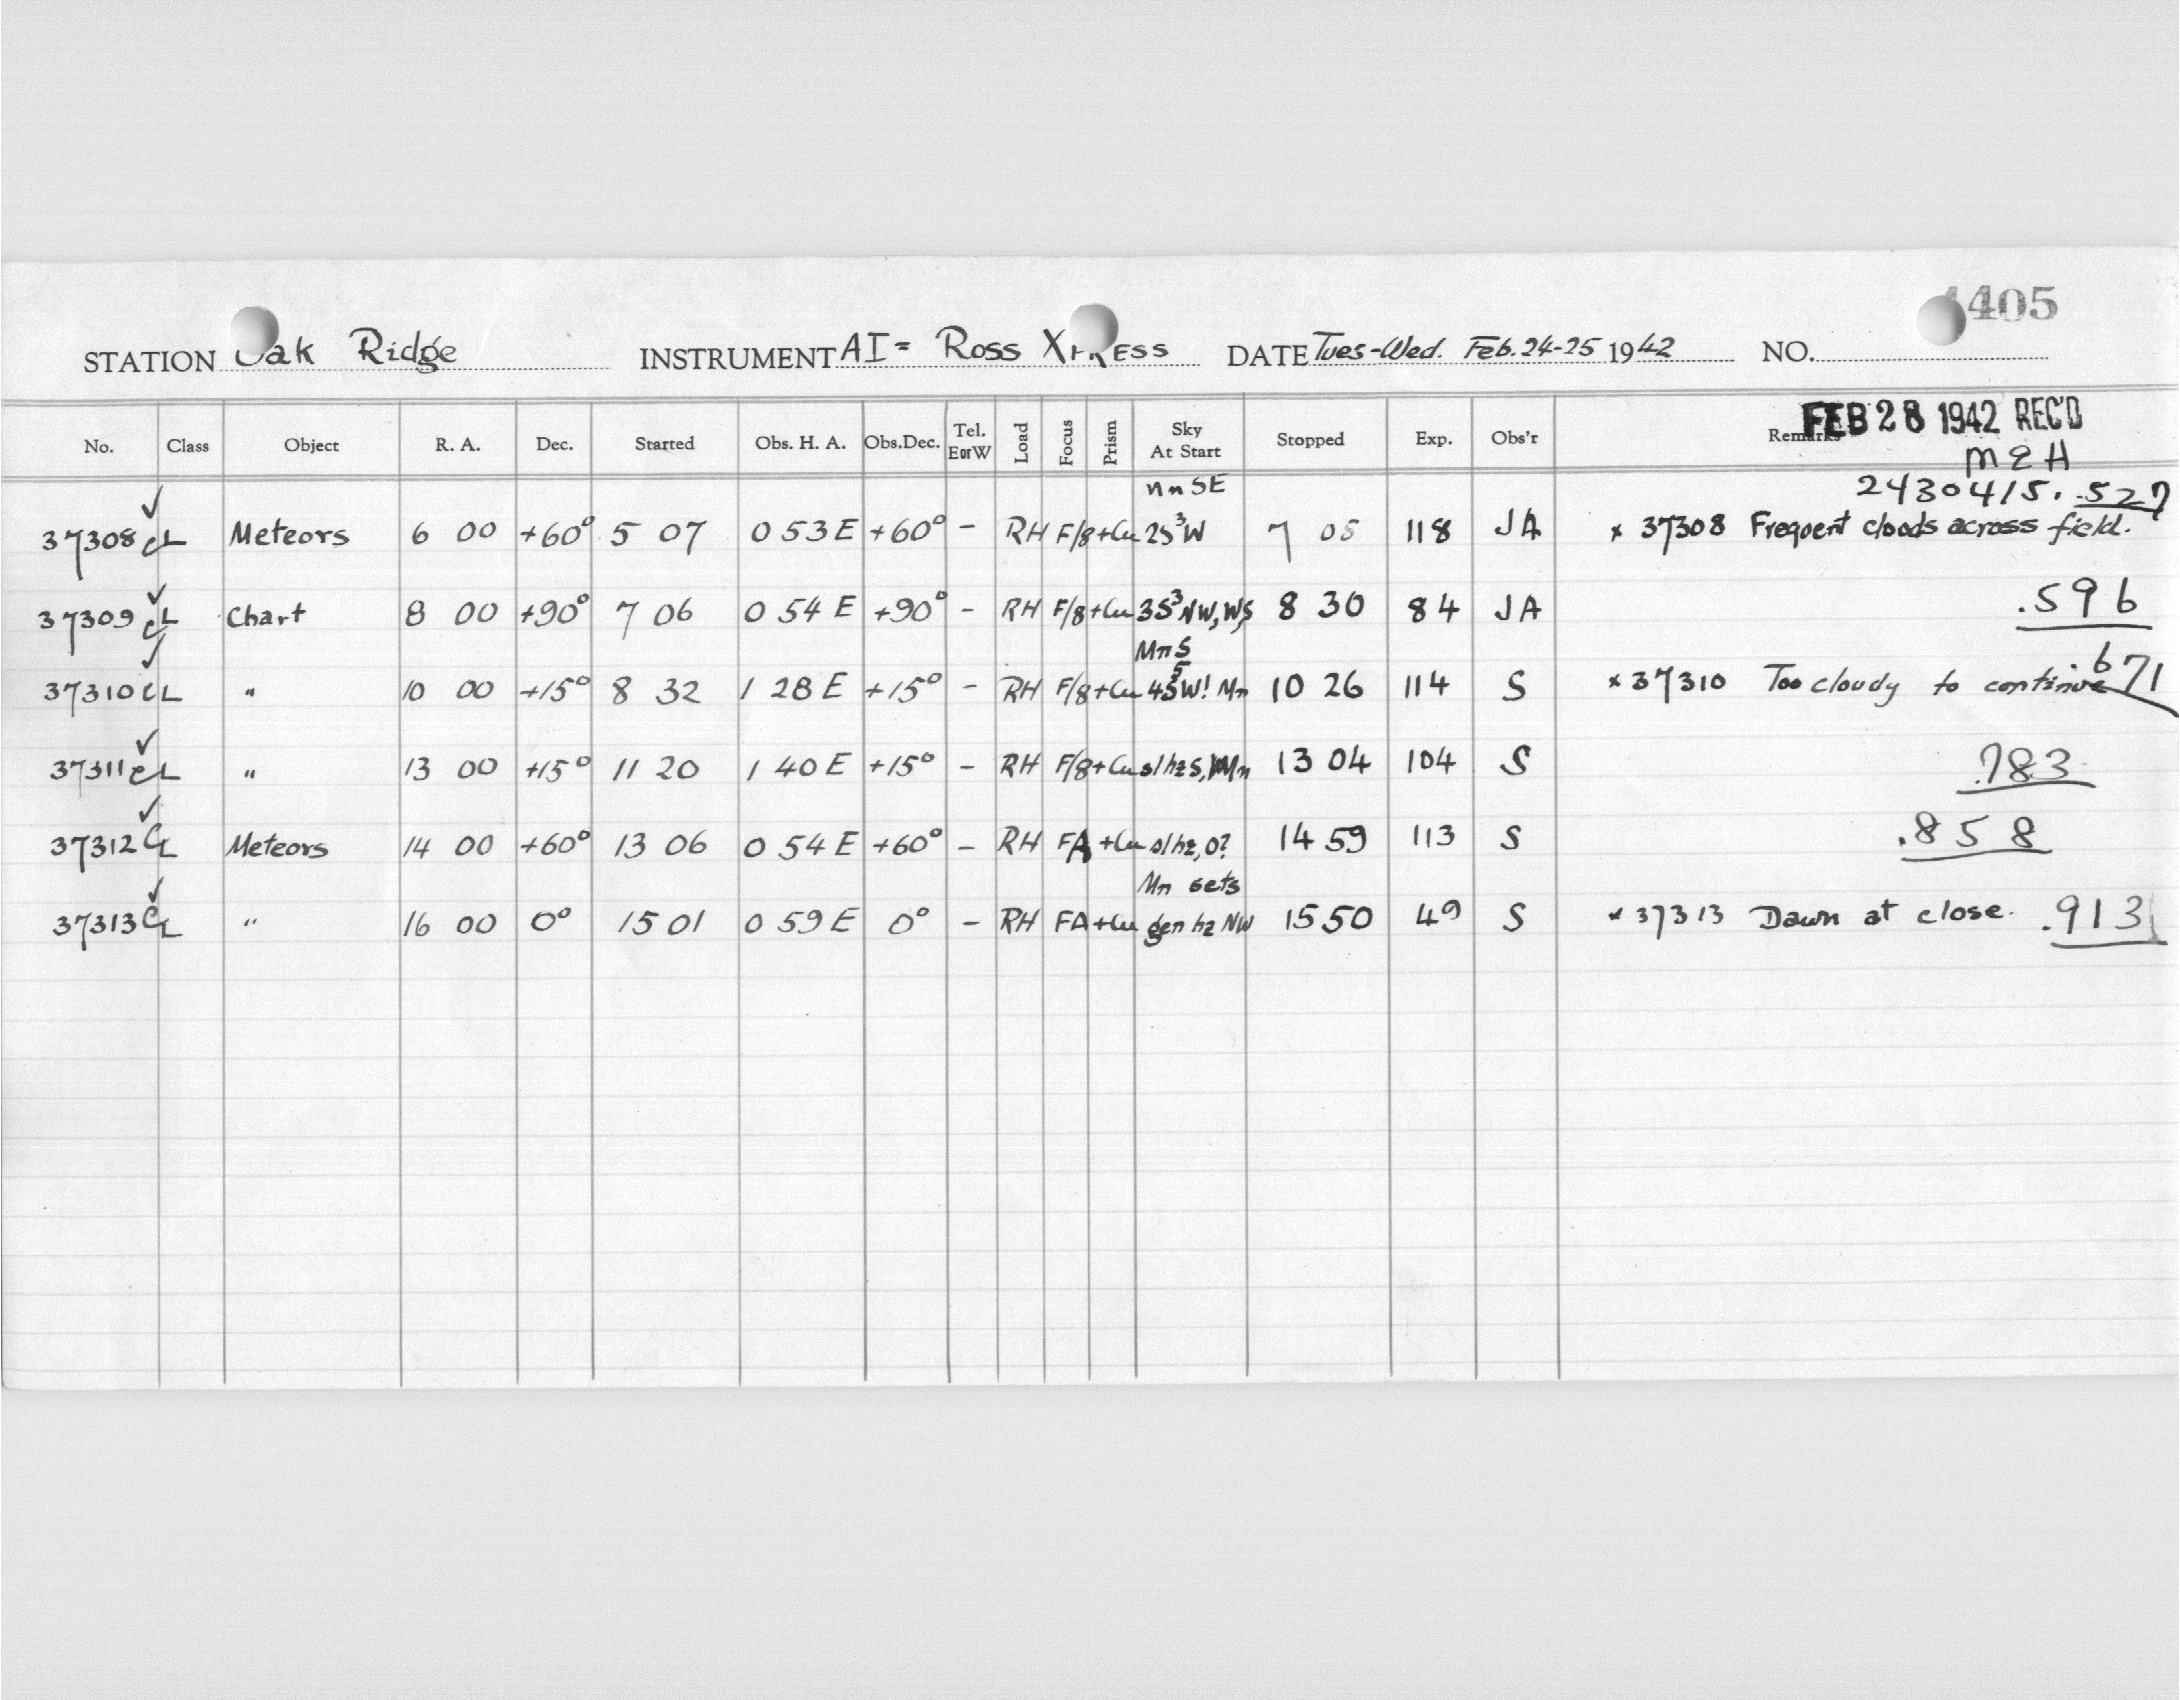 405
STATION Oak Ridge INSTRUMENT AI = Ross XPRESS DATE Tues-Wed. Feb. 24-25 1942 NO.
No. Class Object R. A. Dec. Started Obs. H. A. Obs.Dec. Tel. EorW Load Focus Prism Sky At Start Stopped Exp. Obs'r Remarks
FEB 28 1942 REC'D
M E H
2430415. .527
nn SE
37308 cL Meteors 6 00 +60° 5 07 0 53 E +60° - RH F/8 +Cu 2S³W 7 05 118 JA x 37308 Frequent clouds across field.
37309 cL Chart 8 00 +90° 7 06 0 54 E +90° - RH F/8 +Cu 3S³NW,W,S 8 30 84 JA .596
Mn S
37310 CL " 10 00 +15° 8 32 1 28 E +15° - RH F/8 +Cu 4S⁵W! Mn 10 26 114 S x 37310 Too cloudy to continue .671
37311 cL " 13 00 +15° 11 20 1 40 E +15° - RH F/8 +Cu sl hz S, Mn 13 04 104 S .783
37312 CL Meteors 14 00 +60° 13 06 0 54 E +60° - RH FA +Cu sl hz, 0? 14 59 113 S .858
Mn sets
37313 CL " 16 00 0° 15 01 0 59 E 0° - RH FA +Cu gen hz NW 15 50 49 S x 37313 Dawn at close. .913